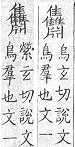 烏玄切說文
鳥羣也文一
縈玄切說文
鳥羣也文一